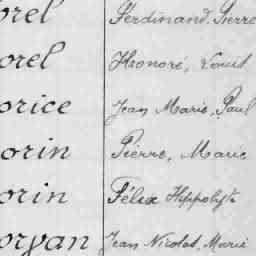 orel Ferdinand. Pierre
orel Honoré, Louis
orice Jean Marie, Paul
orin Pierre, Marie
orin Félix Hippolyte
orvan Jean Nicolas, Marie